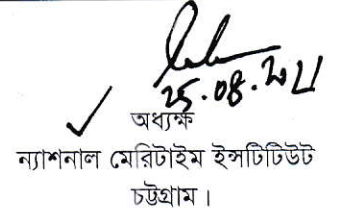 25.08.২১
অধ্যক্ষ
ন্যাশনাল মেরিটাইম ইন্সটিটিউট
চট্টগ্রাম।